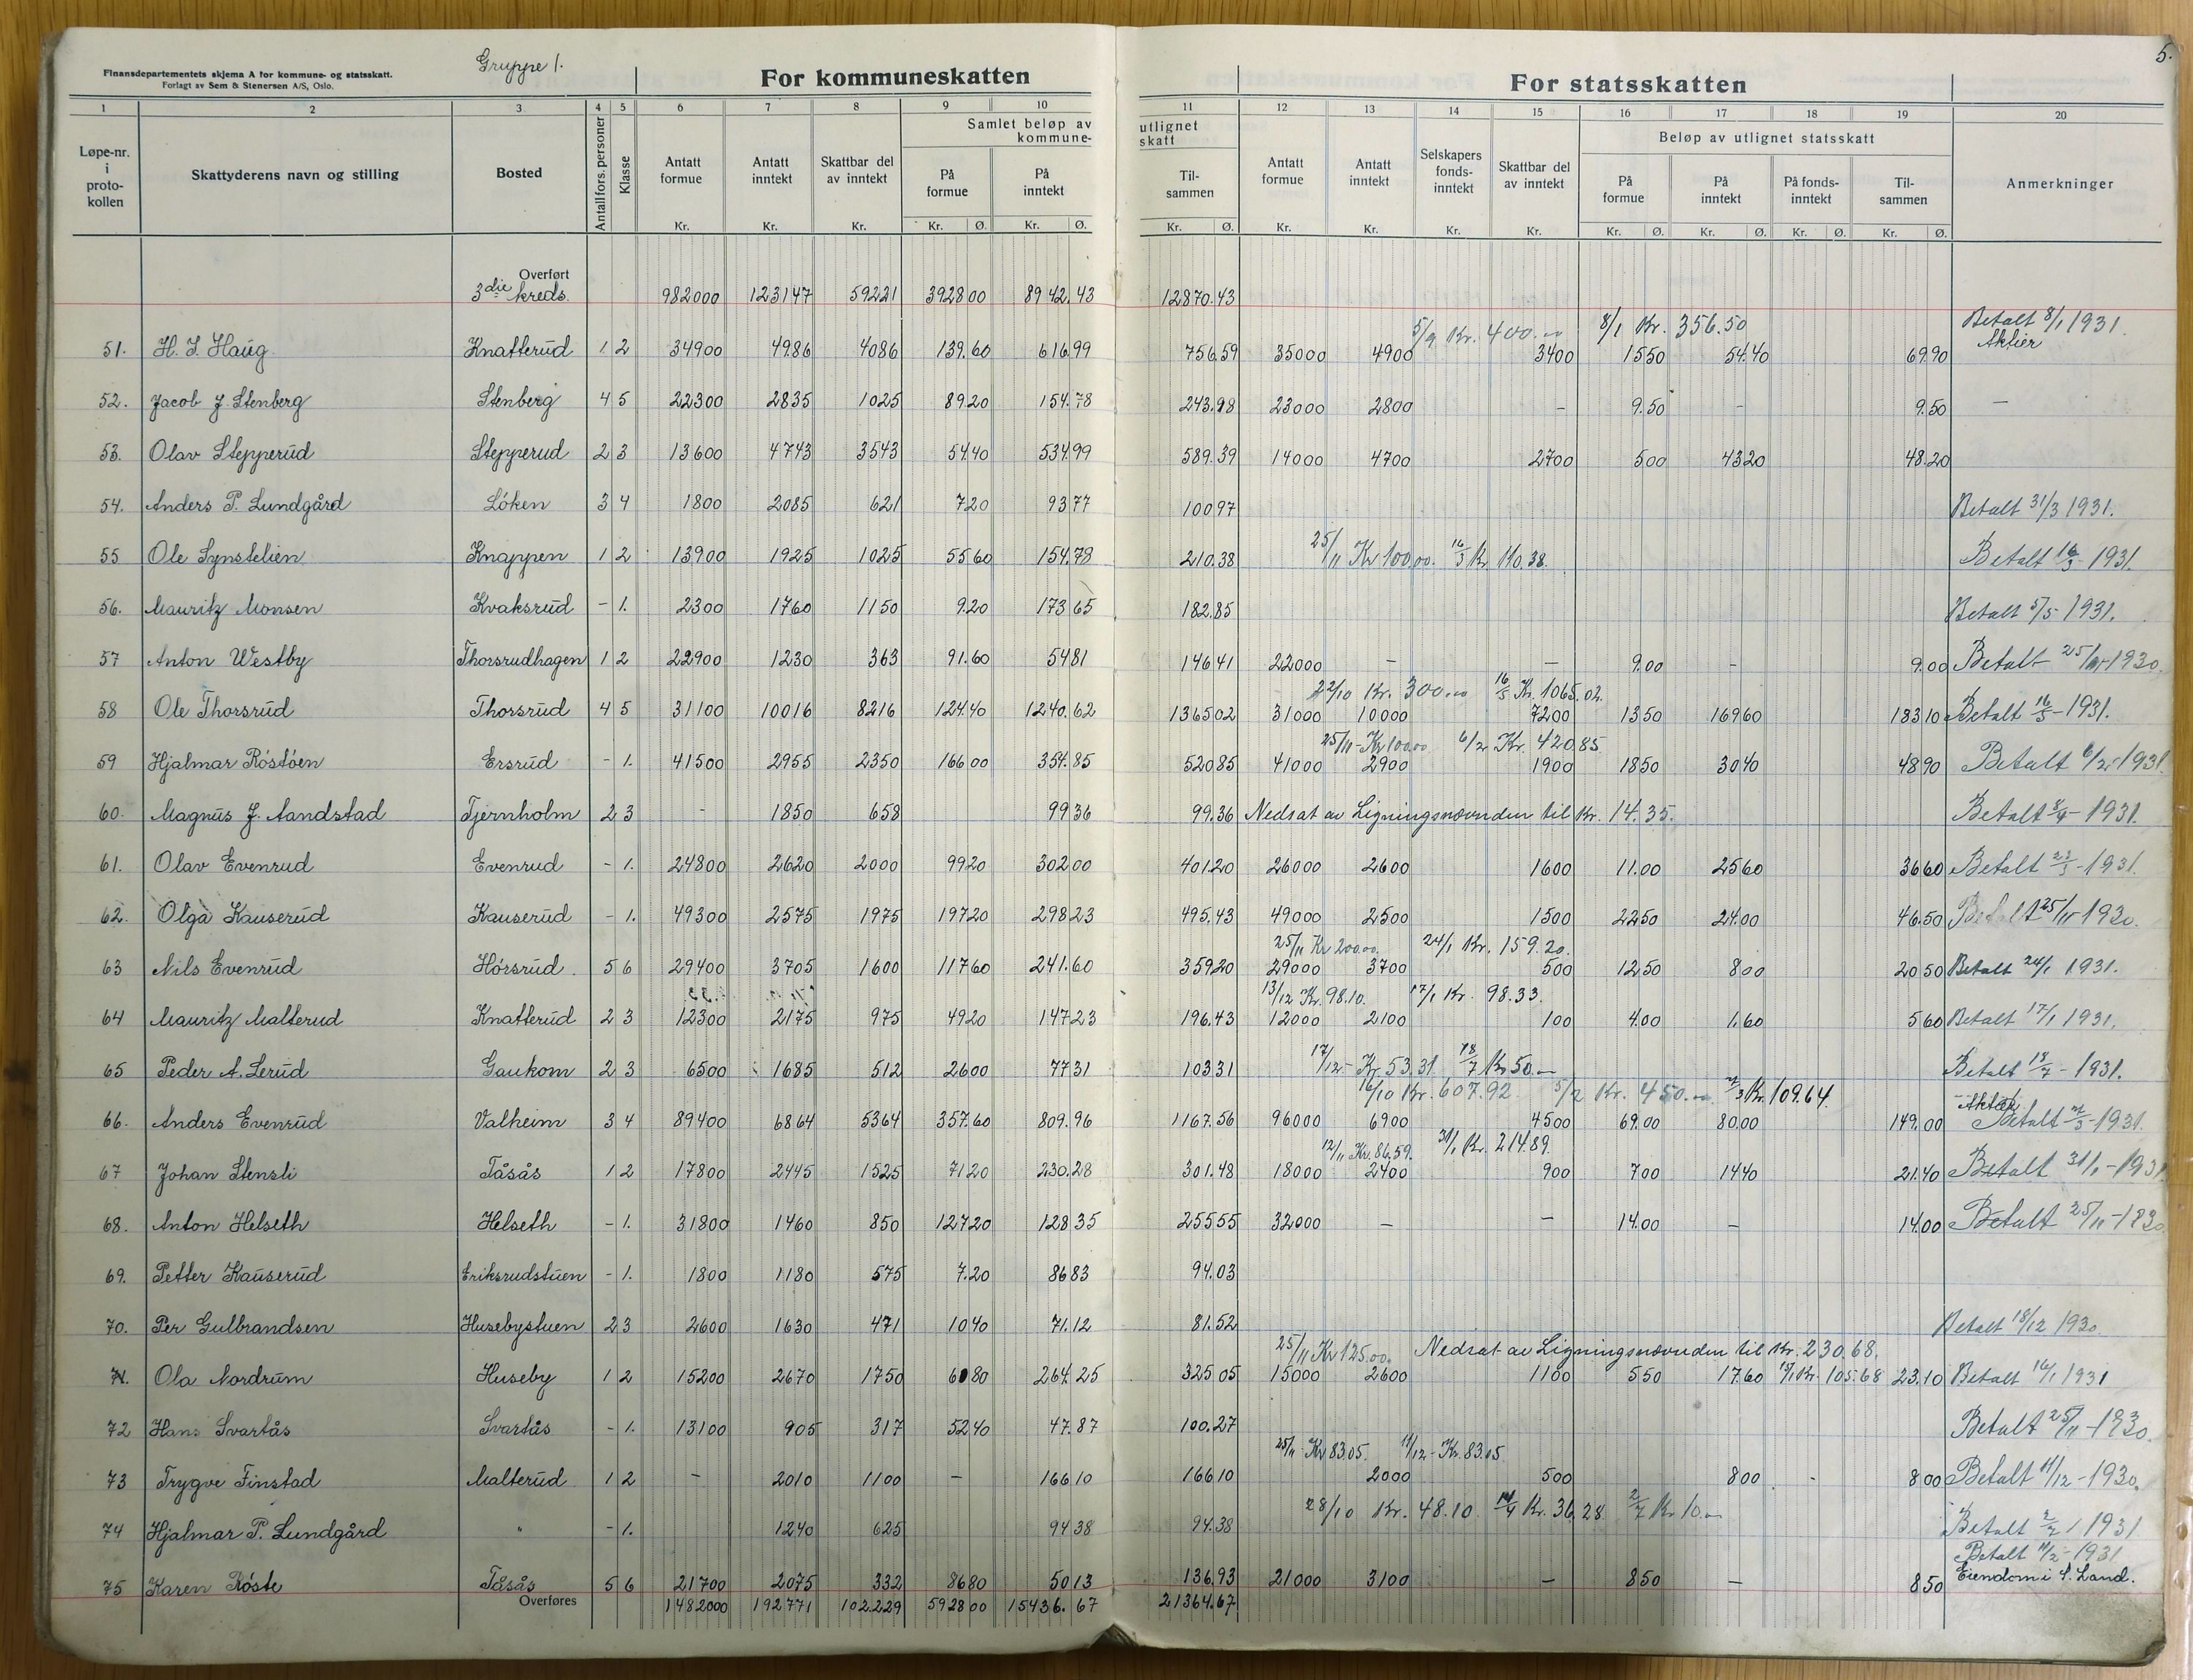 Finansdepartementets skjema A for kommune- og statsskatt.
Forlagt av Sem & Stenersen A/S, Oslo.
Gruppe 1.
For kommuneskatten
For statsskatten
5.
1 2 3 4 5 6 7 8 9 10 11 12 13 14 15 16 17 18 19 20
Løpe-nr. i proto-kollen
Skattyderens navn og stilling
Bosted
Antall fors. personer
Klasse
Antatt formue
Antatt inntekt
Skattbar del av inntekt
Samlet beløp av kommune-
På formue
På inntekt
utlignet skatt
Til-sammen
Antatt formue
Antatt inntekt
Selskapers fonds-inntekt
Skattbar del av inntekt
Beløp av utlignet statsskatt
På formue
På inntekt
På fonds-inntekt
Til-sammen
Anmerkninger
Kr. Kr. Kr. Kr. Ø. Kr. Ø. Kr. Ø. Kr. Kr. Kr. Kr. Kr. Ø. Kr. Ø. Kr. Ø. Kr. Ø.
Overført
3die kreds. 982000 123147 59221 3928 00 8942.43 12870.43
5/9 Kr. 400.00 8/1 Kr. 356.50 Betalt 8/1 1931.
51. H. J. Haug Knatterud 1 2 34900 4986 4086 139.60 616.99 756.59 35000 4900 3400 15 50 54.40 69.90 Aktier
52. Jacob J. Stenberg Stenberg 4 5 22300 2835 1025 89.20 154.78 243.98 23000 2800 – 9.50 – 9.50 –
53. Olav Stepperud Stepperud 2 3 13600 4743 3543 54.40 534.99 589.39 14000 4700 2700 5 00 43 20 48.20
54. Anders P. Lundgård Löken 3 4 1800 2085 621 7 20 93 77 100 97 Betalt 31/3 1931.
55 Ole Synstelien Knappen 1 2 13900 1925 1025 55 60 154.78 210.38 25/11 Kr 100.00. 16/3 Kr 110.38. Betalt 16/3 - 1931.
56. Mauritz Monsen Kvaksrud – 1. 2300 1760 1150 9.20 173 65 182.85 Betalt 5/5 - 1931.
57 Anton Westby Thorsrudhagen 1 2 22900 1230 363 91.60 54 81 146 41 22000 – – 9.00 – 9.00 Betalt 25/11 - 1930.
22/10 Kr. 300.00 16/5 Kr. 1065.02.
58 Ole Thorsrud Thorsrud 4 5 31100 10016 8216 124.40 1240.62 1365 02 31000 10000 7200 13 50 169 60 183 10 Betalt 16/5 - 1931.
25/11 - Kr 100.00 6/2 Kr. 420.85.
59 Hjalmar Röstöen Ersrud – 1. 41500 2955 2350 166 00 354.85 520 85 41000 2900 1900 18 50 30 40 48 90 Betalt 6/2 - 1931.
60. Magnus J. Aandstad Tjernholm 2 3 – 1850 658 99 36 99.36 Nedsat av Ligningsnævnden til Kr. 14.35. Betalt 8/4 - 1931.
61. Olav Evenrud Evenrud – 1. 24800 2620 2000 99 20 302 00 401.20 26000 2600 1600 11.00 25 60 36 60 Betalt 23/3 - 1931.
62. Olga Kauserud Kauserud – 1. 49300 2575 1975 197 20 298 23 495.43 49000 2500 1500 22 50 24.00 46.50 Betalt 25/11 - 1930.
25/11 Kr 200.00. 24/1 Kr. 159.20.
63 Nils Evenrud Hörsrud 5 6 29400 3705 1600 117 60 241.60 359 20 29000 3700 500 12 50 8 00 20 50 Betalt 24/1 1931.
13/12 Kr. 98.10. 17/1 Kr. 98.33.
64 Mauritz Malterud Knatterud 2 3 12300 2175 975 49 20 147 23 196.43 12000 2100 100 4.00 1.60 5 60 Betalt 17/1 1931.
65 Peder A. Lerud Gaukom 2 3 6500 1685 512 26 00 77 31 103 31 17/12 - Kr 53.31. 18/7 Kr 50.– Betalt 18/7 - 1931.
16/10 Kr. 607.92 5/2 Kr. 450.00 Kr. 109.64.
66. Anders Evenrud Valheim 3 4 89400 6864 5364 357.60 809.96 1167.56 96000 6900 4500 69.00 80.00 149.00 Aktier Betalt 1931.
12/11 Kr. 86.59. 31/1 Kr. 214.89.
67 Johan Stensli Tåsås 1 2 17800 2445 1525 71 20 230.28 301.48 18000 2400 900 7 00 14 40 21.40 Betalt 31/1 - 1931.
68. Anton Helseth Helseth – 1. 31800 1460 850 127 20 128 35 255 55 32000 – – 14.00 – 14.00 Betalt 25/11 - 1930
69. Petter Kauserud Eriksrudstuen – 1. 1800 1180 575 7.20 86 83 94.03
70. Per Gulbrandsen Husebystuen 2 3 2600 1630 471 10 40 71.12 81.52 Betalt 18/12 1930.
25/11 Kr 125.00. Nedsat av Ligningsnævnden til Kr. 230.68.
71. Ola Nordrum Huseby 1 2 15200 2670 1750 60 80 264.25 325 05 15000 2600 1100 5 50 17.60 Kr. 105.68 23.10 Betalt 16/1 1931
72 Hans Svartås Svartås – 1. 13100 905 317 52 40 47.87 100.27 Betalt 25/11 - 1930.
25/11 - Kr 83.05. 11/12 - Kr. 83.05.
73 Trygve Finstad Malterud 1 2 – 2010 1100 – 166 10 166 10 2000 500 8 00 - 8 00 Betalt 11/12 - 1930.
28/10 Kr. 48.10. 14/4 Kr. 36.28. 2/7 Kr 10.–
74 Hjalmar P. Lundgård " – 1. 1240 625 94 38 94.38 Betalt 2/7 1931.
Betalt 11/2 - 1931
75 Karen Röste Tåsås 5 6 21700 2075 332 86 80 50 13 136.93 21000 3100 – 8 50 – 8 50 Eiendom i S. Land.
Overføres 1482000 192771 102.229 5928 00 15436.67 21364.67